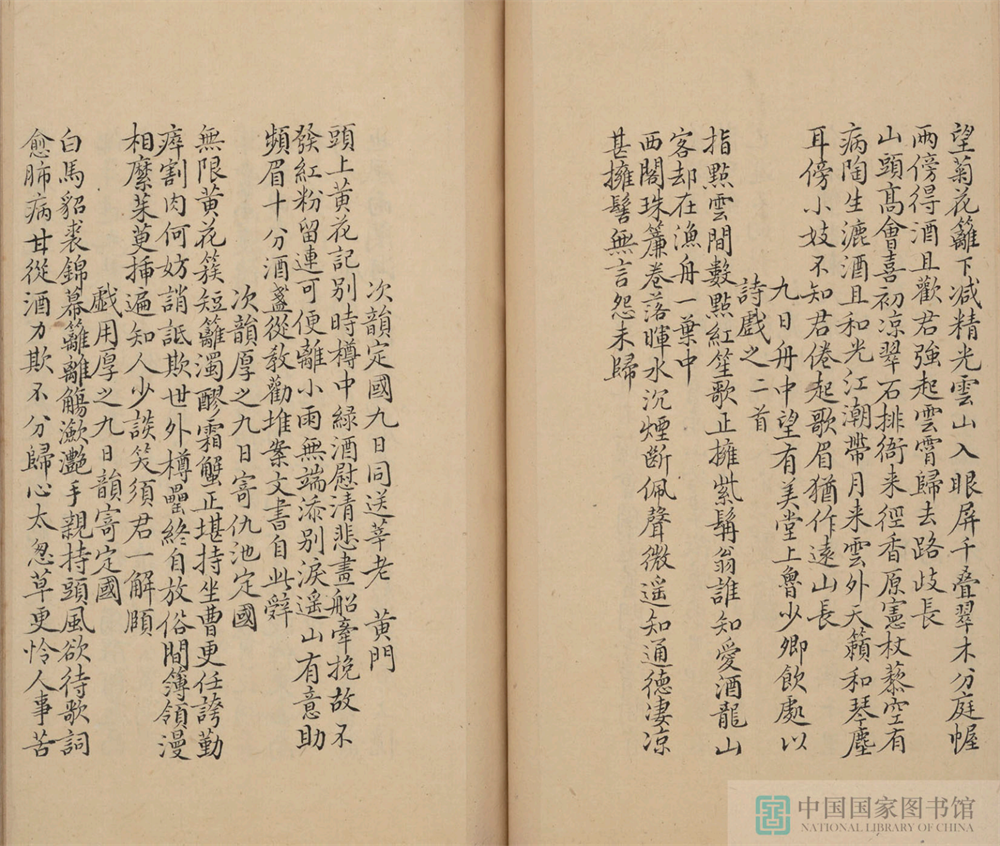 望菊花籬下減精光雲山入眼屏千叠翠木分庭幄
兩傍得酒且歡君強起雲霄歸去路歧長
山頭高會喜初凉翠石排衙来徑香原憲杖藜空有
病陶生漉酒且和光江潮帶月来雲外天籟和琴塵
耳傍小妓不知君倦起歌眉猶作遠山長
九日舟中望有美堂上魯少卿飲處以
詩戲之二首
指點雲間數點紅笙歌止擁紫髯翁誰知愛酒龍山
客却在漁舟一葉中
西閣珠簾卷落暉水沉煙斷佩聲微遥知通德淒凉
甚擁髻無言怨未歸
次韻定國九日同送莘老 黄門
頭上黄花記别時樽中綠酒慰清悲畫船牽挽故不
發紅粉留連可便離小雨無端添别淚遥山有意助
頻眉十分酒盞從教勸堆案文書自此辤
次韻厚之九日寄仇池定國
無限黄花簇短籬濁醪霜蟹正堪持坐曹更任誇勤
瘁割肉何妨誚詆欺世外樽罍終自放俗間簿領漫
相縻茱萸插遍知人少談笑須君一解頤
戲用厚之九日韻寄定國
白馬貂裘錦幕籬離觴瀲灧手親持頭風欲待歌詞
愈肺病甘從酒力欺不分歸心太怱草更怜人事苦
中国国家图书馆
NATIONAL LIBRARY OF CHINA